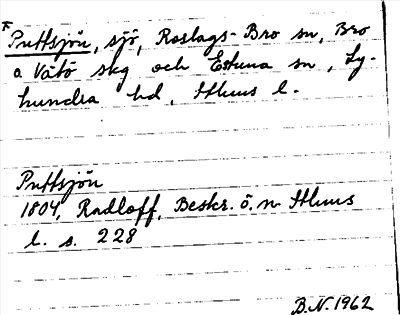 F Puttsjön, sjö, Roslags-Bro sn, Bro
o Vätö skg och Estuna sn, Ly-
hundra hd, Sthms l.
Puttsjön
1804, Radloff, Beskr. ö. n. Sthms
l. s. 228
B.N. 1962